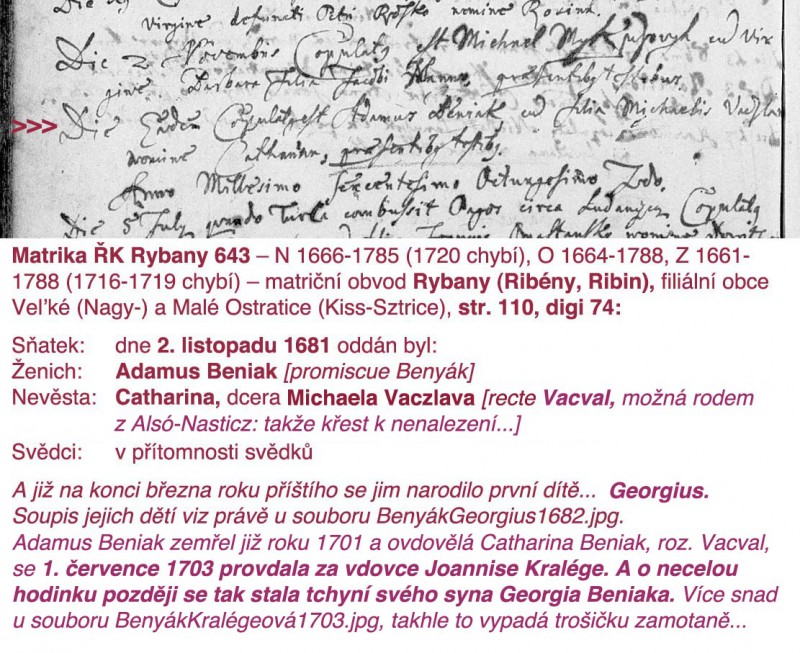 virgine defuncti Petri nomine Rosina.
Die 2 Novembris Copulatq est Michael cu Vir
gine Barbara filia Jacobi Hanno, præsentibq testibus.
>>> Die Eadem Copulatq est Adamus Beniak cu filia Michaelis Vaczla
nomine Catharina, præsentibq testibq.
Anno Millesimo Sexcentesimo Octuagesimo 2do.
Die 5 July quando Turcæ combussit Pagos circa Ludanÿ Copulatq
nomine
Matrika ŘK Rybany 643 – N 1666-1785 (1720 chybí), O 1664-1788, Z 1661-
1788 (1716-1719 chybí) – matriční obvod Rybany (Ribény, Ribin), filiální obce
Vel’ké (Nagy-) a Malé Ostratice (Kiss-Sztrice), str. 110, digi 74:
Sňatek: dne 2. listopadu 1681 oddán byl:
Ženich: Adamus Beniak [promiscue Benyák]
Nevěsta: Catharina, dcera Michaela Vaczlava [recte Vacval, možná rodem
z Alsó-Nasticz: takže křest k nenalezení...]
Svědci: v přítomnosti svědků
A již na konci března roku příštího se jim narodilo první dítě... Georgius.
Soupis jejich dětí viz právě u souboru BenyákGeorgius1682.jpg.
Adamus Beniak zemřel již roku 1701 a ovdovělá Catharina Beniak, roz. Vacval,
se 1. července 1703 provdala za vdovce Joannise Kralége. A o necelou
hodinku později se tak stala tchyní svého syna Georgia Beniaka. Více snad
u souboru BenyákKralégeová1703.jpg, takhle to vypadá trošičku zamotaně...